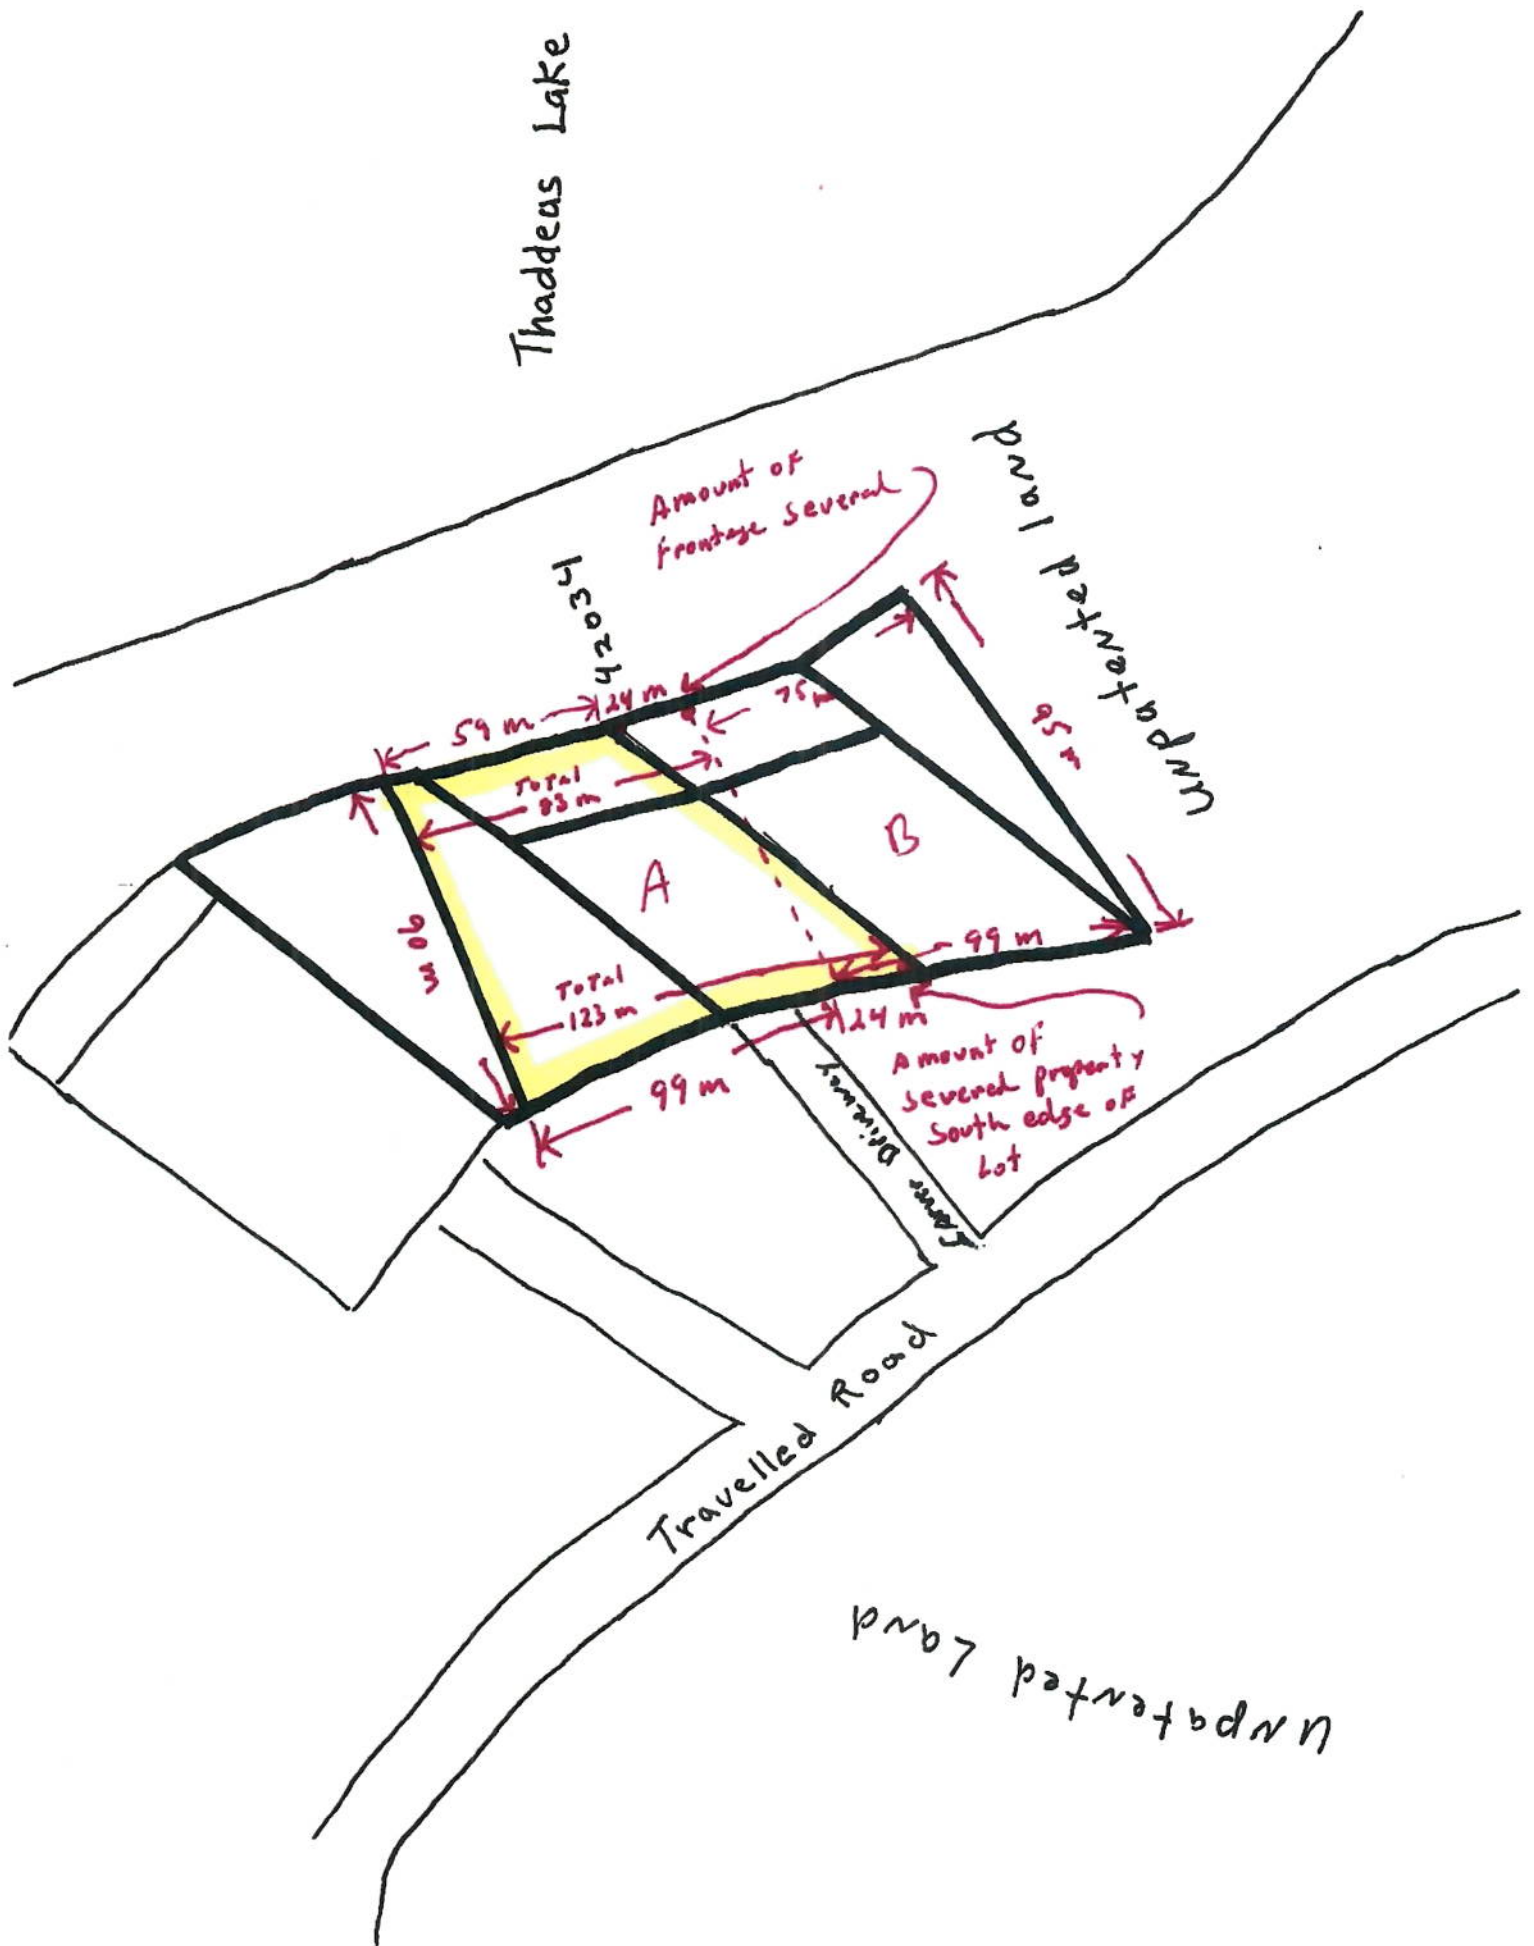 Thaddeus Lake
Unpatented land
Amount of
frontage Severed
42034
59 m
24 m
75 m
Total
83 m
95 m
A
B
90 m
Total
123 m
99 m
24 m
99 m
Amount of
severed property
South edge of
Lot
Former Driveway
Travelled Road
Unpatented Land